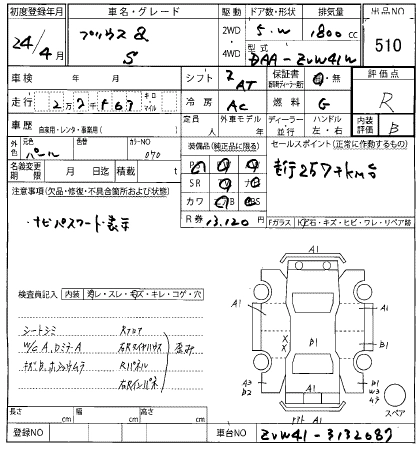 初度登録年月
24/4月
車名・グレード
プリウスα
S
駆動
2WD
4WD
ドア数・形状
5・W
排気量
1800 cc
型式
DAA-ZVW41W
出品NO
510
車検 年 月
シフト
AT
保証書
有・無
評価点
R
走行
キロ
マイル
冷房
AC
燃料
G
車歴
自家用・レンタ・事業用( )
定員
人
外車モデル
年
ディーラー
並行
ハンドル
左・右
内装評価
B
外色
元色
パール
色替
カラーNO
070
装備品(純正品に限る)
セールスポイント(正常に作動するもの)
走行257千km台
名義変更期限
月 日
積載 t
SR
カワ
R券
13,120円
注意事項(欠品・修復・不具合箇所および状態)
・ナビパスワード表示
Fガラス
石・キズ・ヒビ・ワレ・リペア跡
検査員記入
内装
・スレ・キズ・キレ・コゲ・穴
シートシミ
W/C A.Dミラー A
Rフロア
右Rタイヤハウス
Rパネル
右Rインパネ
歪み
A1
A1
A1
A1
B1
B1
X
X
A3
B2
B1
W3
A1
スペア
長さ cm
幅 cm
高さ cm
登録NO
車台NO
ZVW41-3132687